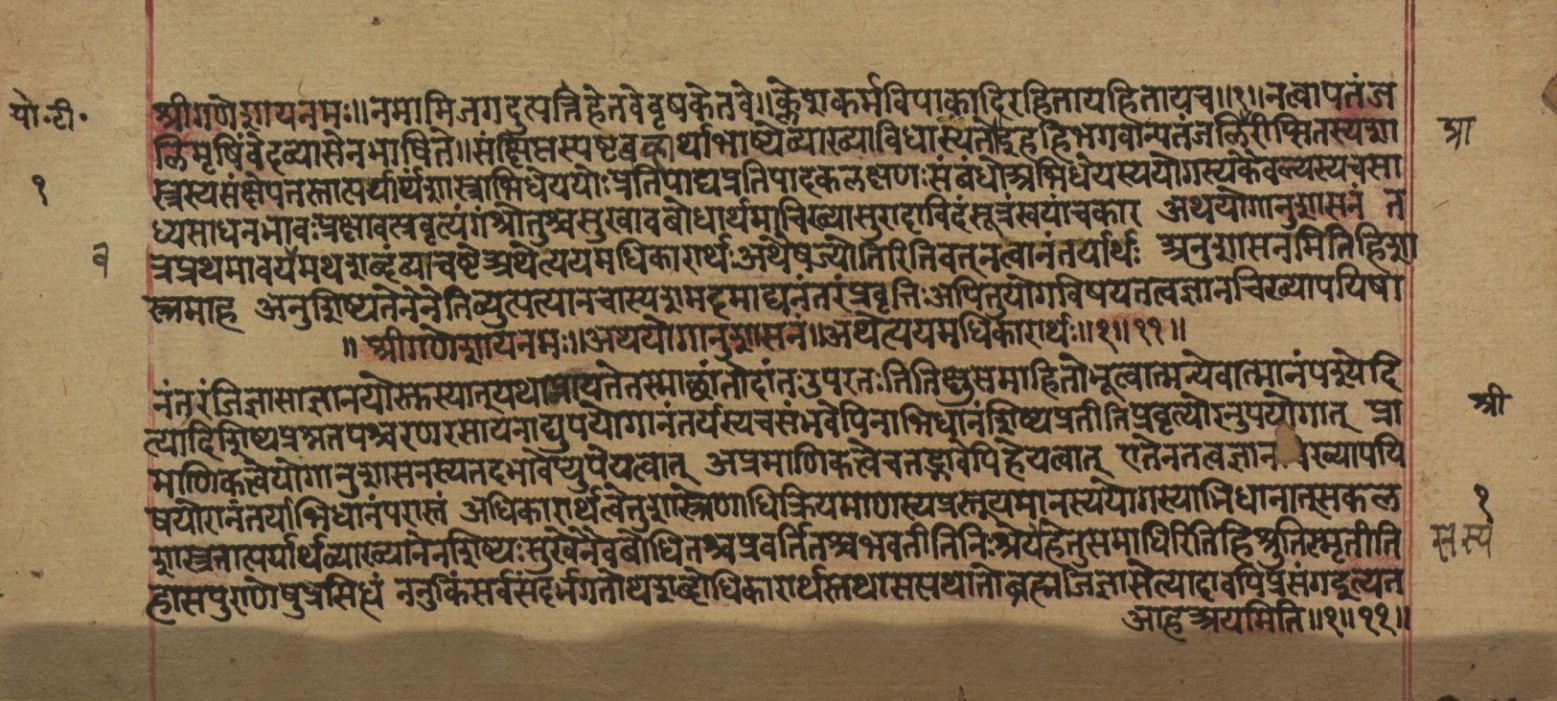 यो॰टी॰
श्रीगणेशायनमः॥नमामिजगदुत्पत्तिहेतवेवृषकेतवे॥क्लेशकर्मविपाकादिरहितायहितायच॥१॥नत्वापतंज
लिमृषिंवेदव्यासेनभाषिते॥संक्षिप्तस्पष्टबह्वर्थाभाष्येव्याख्याविधास्यते इहहिभगवान्पतंजलिरीप्सितस्यशा
स्त्रस्यसंक्षेपतस्तात्पर्यार्थंशास्त्राभिधेययोःप्रतिपाद्यप्रतिपादकलक्षणःसंबंधोअभिधेयस्ययोगस्यकैवल्यस्यचसा
ध्यसाधनभावःप्रेक्षावत्प्रवृत्यंगंश्रोतुश्चसुखावबोधार्थमाचिख्यासुरादाविदंसूत्रंरचयांचकार अथयोगानुशासनं त
त्रप्रथमावयवमथशब्दंव्याचष्टेअथेत्ययमधिकारार्थःअथैषज्योतिरितिवत्नत्वानंतर्यार्थः अनुशासनमितिहिशा
स्त्रमाह अनुशिष्यतेनेनेतिव्युत्पत्यानचास्यशमदमाद्यनंतरंप्रवृत्तिःअपितुयोगविषयतत्वज्ञानचिख्यापयिषा
॥श्रीगणेशायनमः॥अथयोगानुशासनं॥अथेत्ययमधिकारार्थः॥१॥११॥
नंतरंजिज्ञासाज्ञानयोस्तस्यात्यथाम्नायतेतस्माच्छांतोदांतःउपरतःतितिक्षुःसमाहितोभूत्वात्मन्येवात्मानंपश्येदि
त्यादिशिष्यप्रश्नतपश्चरणरसायनाद्युपयोगानंतर्यस्यचसंभवेपिनाभिधानंशिष्यप्रतीतिप्रवृत्योरनुपयोगात् प्रा
माणिकत्वेयोगानुशासनस्यतदभावेप्युपेयत्वात् अप्रमाणिकत्वेचतद्भावेपिहेयत्वात् एतेनतत्वज्ञान ख्यापयि
षयोरानंतर्याभिधानंपरास्तं अधिकारार्थत्वेतुशास्त्रेणाधिक्रियमाणस्यप्रस्तूयमानस्ययोगस्याभिधानात्सकल
शास्त्रतात्पर्यार्थव्याख्यानेनशिष्यःसुखेनैवबोधितश्चप्रवर्तितश्चभवतीतिनिःश्रेयहेतुसमाधिरितिहिश्रुतिस्मृतीति
हासपुराणेषुप्रसिद्धं ननुकिंसर्वसंदर्भगतोथशब्दोधिकारार्थस्तथासत्यथातोब्रह्मजिज्ञासेत्यादावपिप्रसंगइत्यत
आहअयमिति॥१॥११॥
१
व
शा
श्री
१